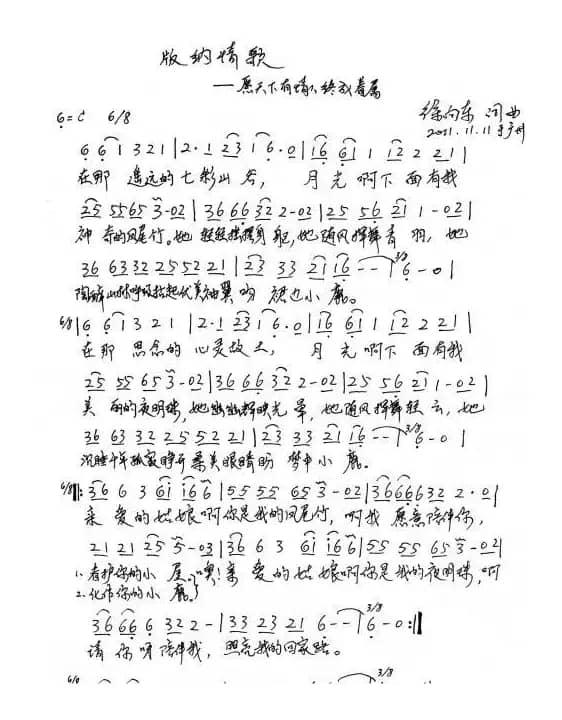 版纳情歌
——愿天下有情人终成眷属
6=C 6/8 徐向东 词曲
2011.11.11于广州
6 6 1 3 2 1 | 2·1 2 3 1 6·0 | 1 6 6 1 1 1 2 2 2 1 |
在那 遥远的七彩山谷， 月光啊下面有我
2 5 5 5 6 5 3-0 2 | 3 6 6 6 3 2 2-0 2 | 2 5 5 6 2 1 1-0 2 |
神奇的凤尾竹。她轻轻摇摆身躯，她随风挥舞青羽，她
3 6 6 3 3 2 2 5 5 2 2 1 | 2 3 3 3 2 1 1 6 - - | 3/8 6 - 0 |
陶醉山林呼吸 小鹿。
6/8 | 6 6 1 3 2 1 | 2·1 2 3 1 6·0 | 1 6 6 1 1 1 2 2 2 1 |
在那 思念的心灵故土， 月光啊下面有我
2 5 5 5 6 5 3-0 2 | 3 6 6 6 3 2 2-0 2 | 2 5 5 6 2 1 1-0 2 |
美丽的夜明珠，她幽幽辉映光晕，她随风挥舞轻云，她
3 6 6 3 3 2 2 5 5 2 2 1 | 2 3 3 3 2 1 1 6 - - | 3/8 6 - 0 |
沉睡千年 睁开柔美眼睛吻 梦中小鹿。
6/8 ‖: 3 6 6 3 6 1 1 6 6 | 5 5 5 5 6 5 3-0 2 | 3 6 6 6 6 3 2 2·0 |
亲爱的姑娘啊你是我的凤尾竹，啊我愿意陪伴你，
2 1 2 1 2 5 5-0 3 | 3 6 6 3 6 1 1 6 6 | 5 5 5 5 6 5 3-0 2 |
1.看护你的小屋。噢！亲爱的姑娘啊你是我的夜明珠，啊
2.化作你的小鹿。
3 6 6 6 6 3 2 2 - | 3 3 2 3 2 1 6 - - | 3/8 6 - 0 :‖
请你呀陪伴我，照亮我的回家路。
6/8 3/8